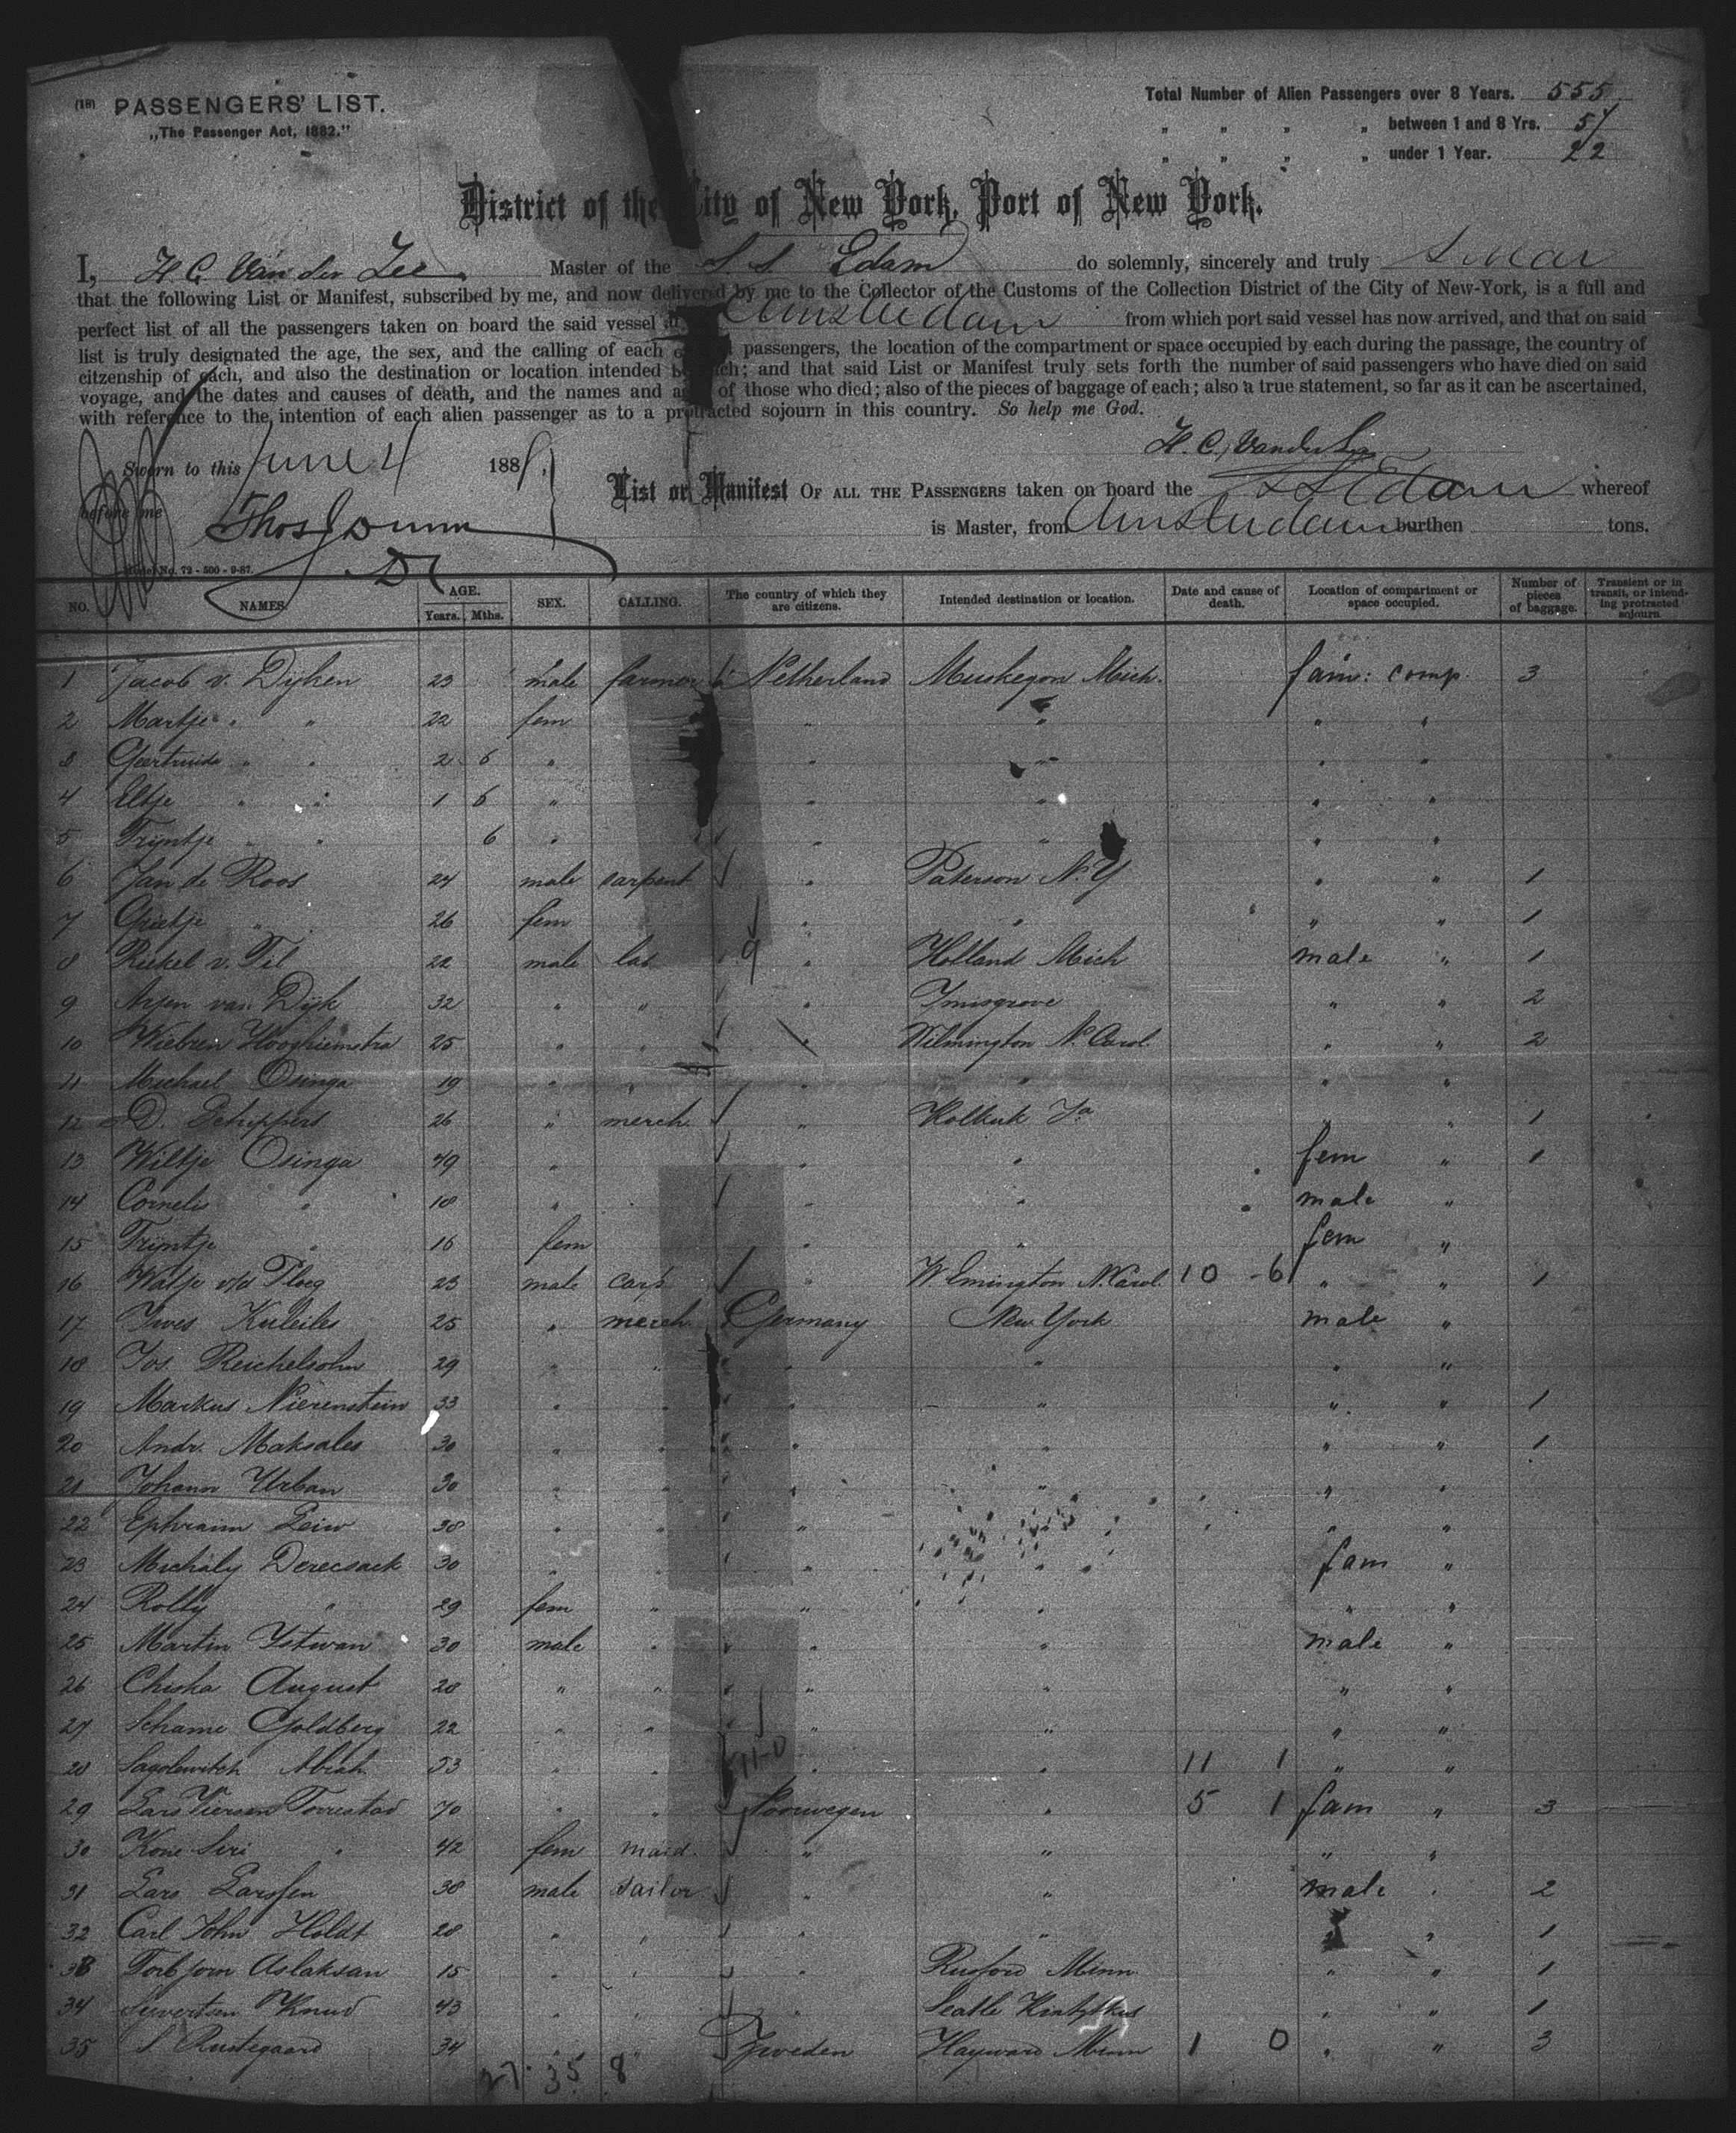 (18) PASSENGERS' LIST.
„The Passenger Act, 1882."
Total Number of Alien Passengers over 8 Years. 555
" " " " between 1 and 8 Yrs. 51
" " " " under 1 Year. 22
District of the City of New York, Port of New York.
I, H. C. Van der Zee Master of the S. S. Edam do solemnly, sincerely and truly swear
that the following List or Manifest, subscribed by me, and now delivered by me to the Collector of the Customs of the Collection District of the City of New-York, is a full and
perfect list of all the passengers taken on board the said vessel at Amsterdam from which port said vessel has now arrived, and that on said
list is truly designated the age, the sex, and the calling of each of passengers, the location of the compartment or space occupied by each during the passage, the country of
citzenship of each, and also the destination or location intended by each; and that said List or Manifest truly sets forth the number of said passengers who have died on said
voyage, and the dates and causes of death, and the names and ages of those who died; also of the pieces of baggage of each; also a true statement, so far as it can be ascertained,
with reference to the intention of each alien passenger as to a protracted sojourn in this country. So help me God.
H. C. Van der Zee
Sworn to this June 4 188
before me Thos Dunn
List or Manifest OF ALL THE PASSENGERS taken on board the SS Edam whereof
is Master, from Amsterdam burthen tons.
Model No. 72 - 500 - 9-87.
NO. NAMES. AGE. Years. Mths. SEX. CALLING. The country of which they are citizens. Intended destination or location. Date and cause of death. Location of compartment or space occupied. Number of pieces of baggage. Transient or in transit, or intending protracted sojourn.
1 Jacob v. Dijken 23 male farmer Netherland Muskegon Mich. fam: comp. 3
2 Martje " " 22 fem " " " "
3 Geertruida " " 2 6 " " " " "
4 Eltje " " 1 6 " " " " "
5 Trijntje " " 6 " " " " "
6 Jan de Roos 24 male carpent " Paterson N.Y " " 1
7 Grietje " 26 fem " " " " 1
8 Riekel v. Til 22 male lab " Holland Mich male " 1
9 Arjen van Dijk 32 " " " " " 2
10 Wiebren Hooghiemstra 25 " " " Wilmington N. Carol. " " 2
11 Michael Osinga 19 " " " " " "
12 D. Schippers 26 " merch " " " 1
13 Wiltje Osinga 49 " " " fem " 1
14 Cornelis " 18 " " " male "
15 Trijntje " 16 fem " " fem "
16 Watje v/d Ploeg 23 male carp " Wilmington N. Carol. 10 - 6 " " 1
17 25 " merch Germany New York male "
18 Jos. Reichelsohn 29 " " " " " "
19 Markus Nierenstein 33 " " " " " 1
20 Andr. Maksales 30 " " " " " " 1
21 Johann Urban 30 " " " " "
22 Ephraim Leiw 38 " " " " "
23 Michaly Derecsack 30 " " " " fam "
24 Rolly " 29 fem " " " " "
25 Martin Istwan 30 male " " " male "
26 Chiska August 28 " " " " " "
27 Schame Goldberg 22 " " " " " "
28 Abrah 53 " " " " 11 1 " "
29 Lars Torrestad 70 " " Noorwegen " 5 1 fam " 3
30 Kone Siri " 42 fem maid " " " "
31 Lars Larssen 38 male sailor " " male " 2
32 Carl John Holdt 28 " " " " " 1
33 Torbjorn Aslaksan 15 " " " Rusford Minn " " 1
34 Syvertsen Knud 43 " " " Seatle " " 1
35 S Rustegaard 34 " " Zweden Hayward Minn 1 0 " " 3
27 35 8